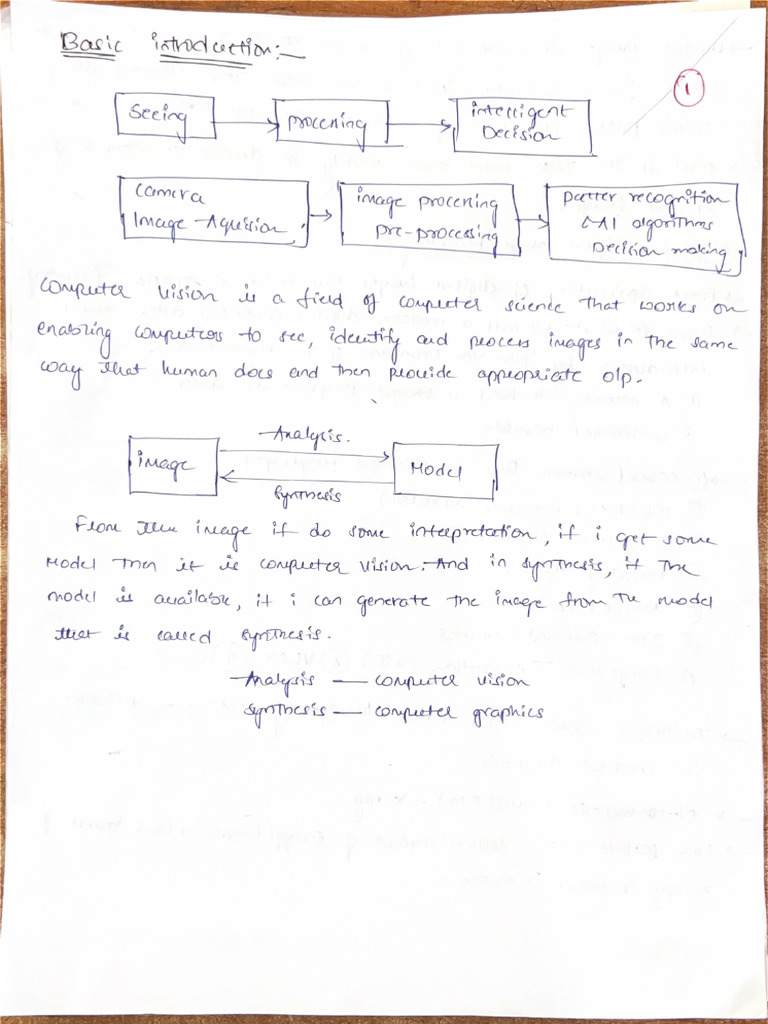 Basic introduction:-
1
Seeing
procening
intelligent
Decision
Camera
Image Aquision
image procening
pre-processing
patter recognition
AI algorithms
Decision making
Computer vision is a field of computer science that works on
enabling computers to see, identify and process images in the same
way that human does and then provide appropriate o/p.
Analysis.
image
Model
Synthesis
From the image if do some interpretation, if i get some
Model then it is computer vision. And in synthesis, if the
model is available, if i can generate the image from the model
that is called synthesis.
Analysis — computer vision
Synthesis — computer graphics